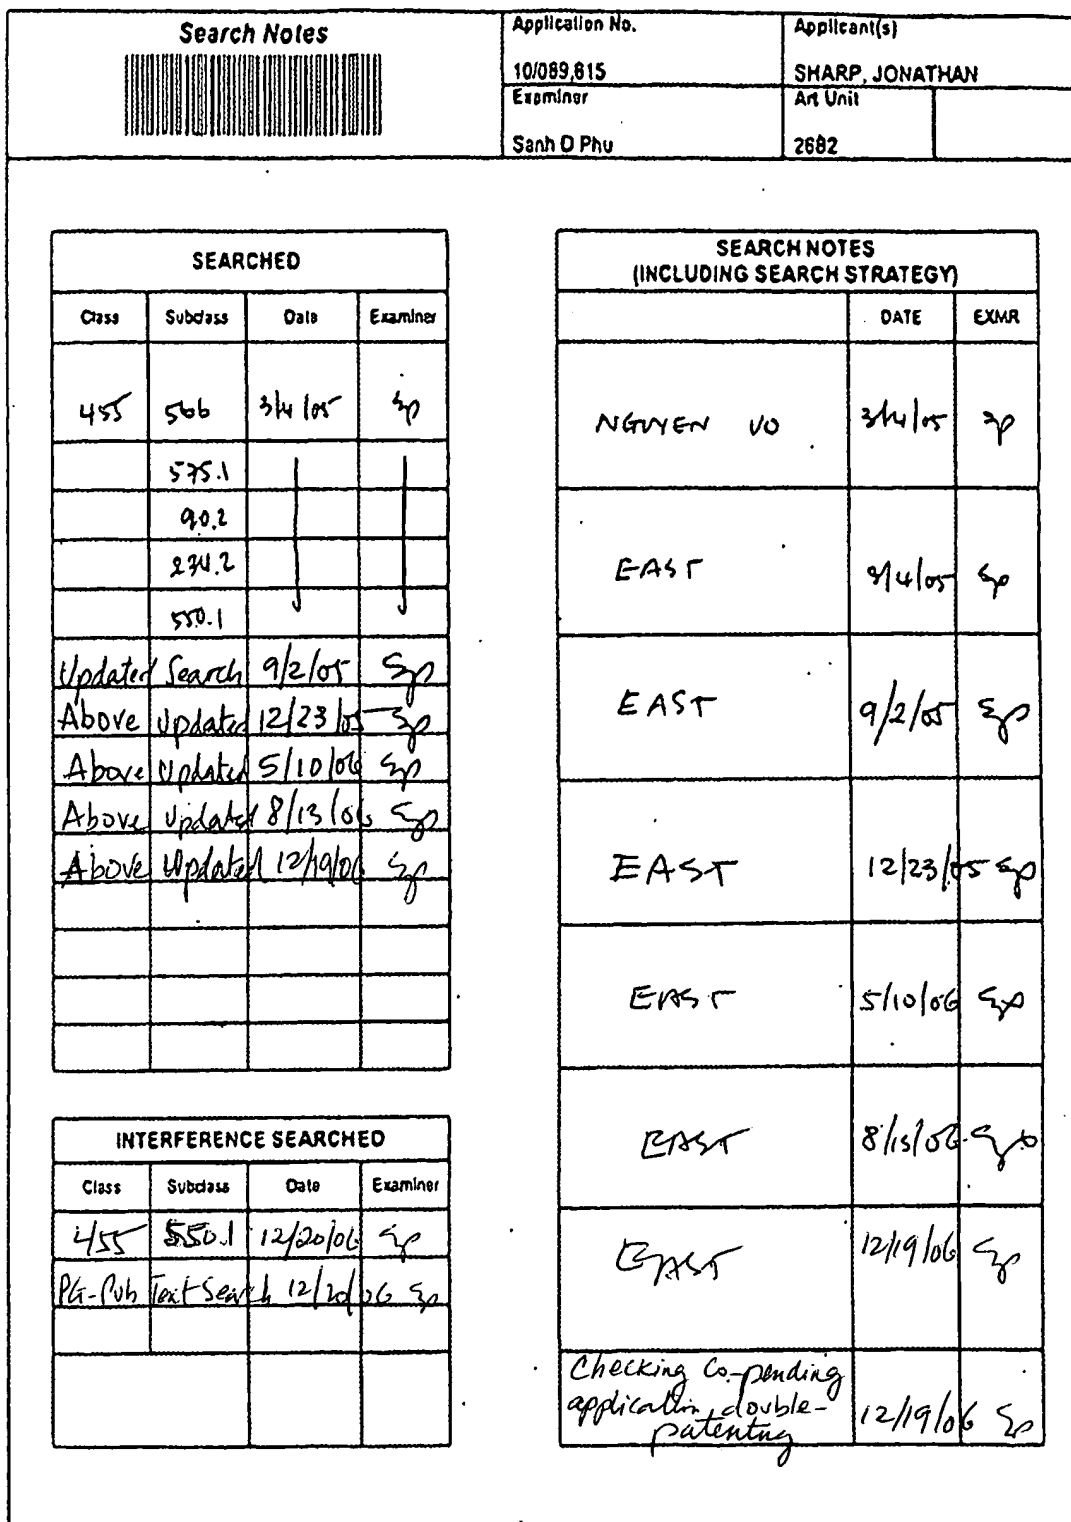 Search Notes
Application No.
Applicant(s)
10/089,615
SHARP, JONATHAN
Examiner
Art Unit
Sanh D Phu
2682
SEARCHED
Class Subclass Date Examiner
455 566 3/4/05 SP
575.1
90.2
234.2
550.1
Updated Search 9/2/05 SP
Above Updated 12/23/05 SP
Above Updated 5/10/06 SP
Above Updated 8/13/06 SP
Above Updated 12/19/06 SP
INTERFERENCE SEARCHED
Class Subclass Date Examiner
455 550.1 12/20/06 SP
PG-Pub Text Search 12/20/06 SP
SEARCH NOTES
(INCLUDING SEARCH STRATEGY)
DATE EXMR
NGUYEN VO 3/4/05 SP
EAST 3/4/05 SP
EAST 9/2/05 SP
EAST 12/23/05 SP
EAST 5/10/06 SP
EAST 8/13/06 SP
EAST 12/19/06 SP
Checking Co-pending
application double-
patenting 12/19/06 SP